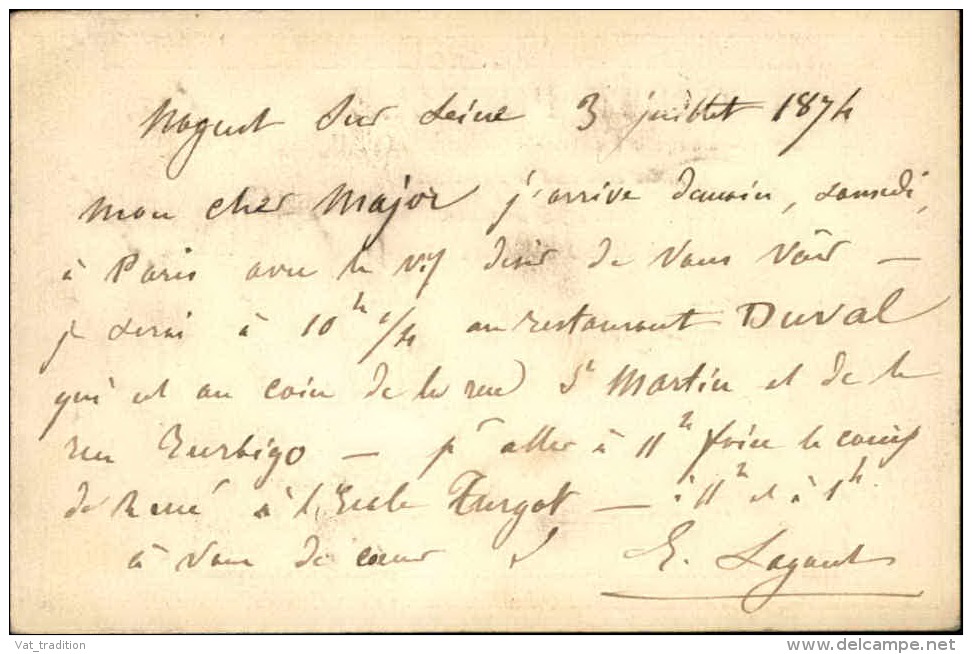 Nogent sur Seine 3 juillet 1874
Mon cher Major j'arrive demain, samedi,
à Paris avec le vif désir de vous voir —
je serai à 10h 1/4 au restaurant Duval
qui est au coin de la rue St Martin et de la
rue Turbigo — pr aller à 11h faire le
de René à l'Ecole Turgot — à 11h et à 1h.
à vous de cœur E. Lagant
Vat_tradition
delcampe.net